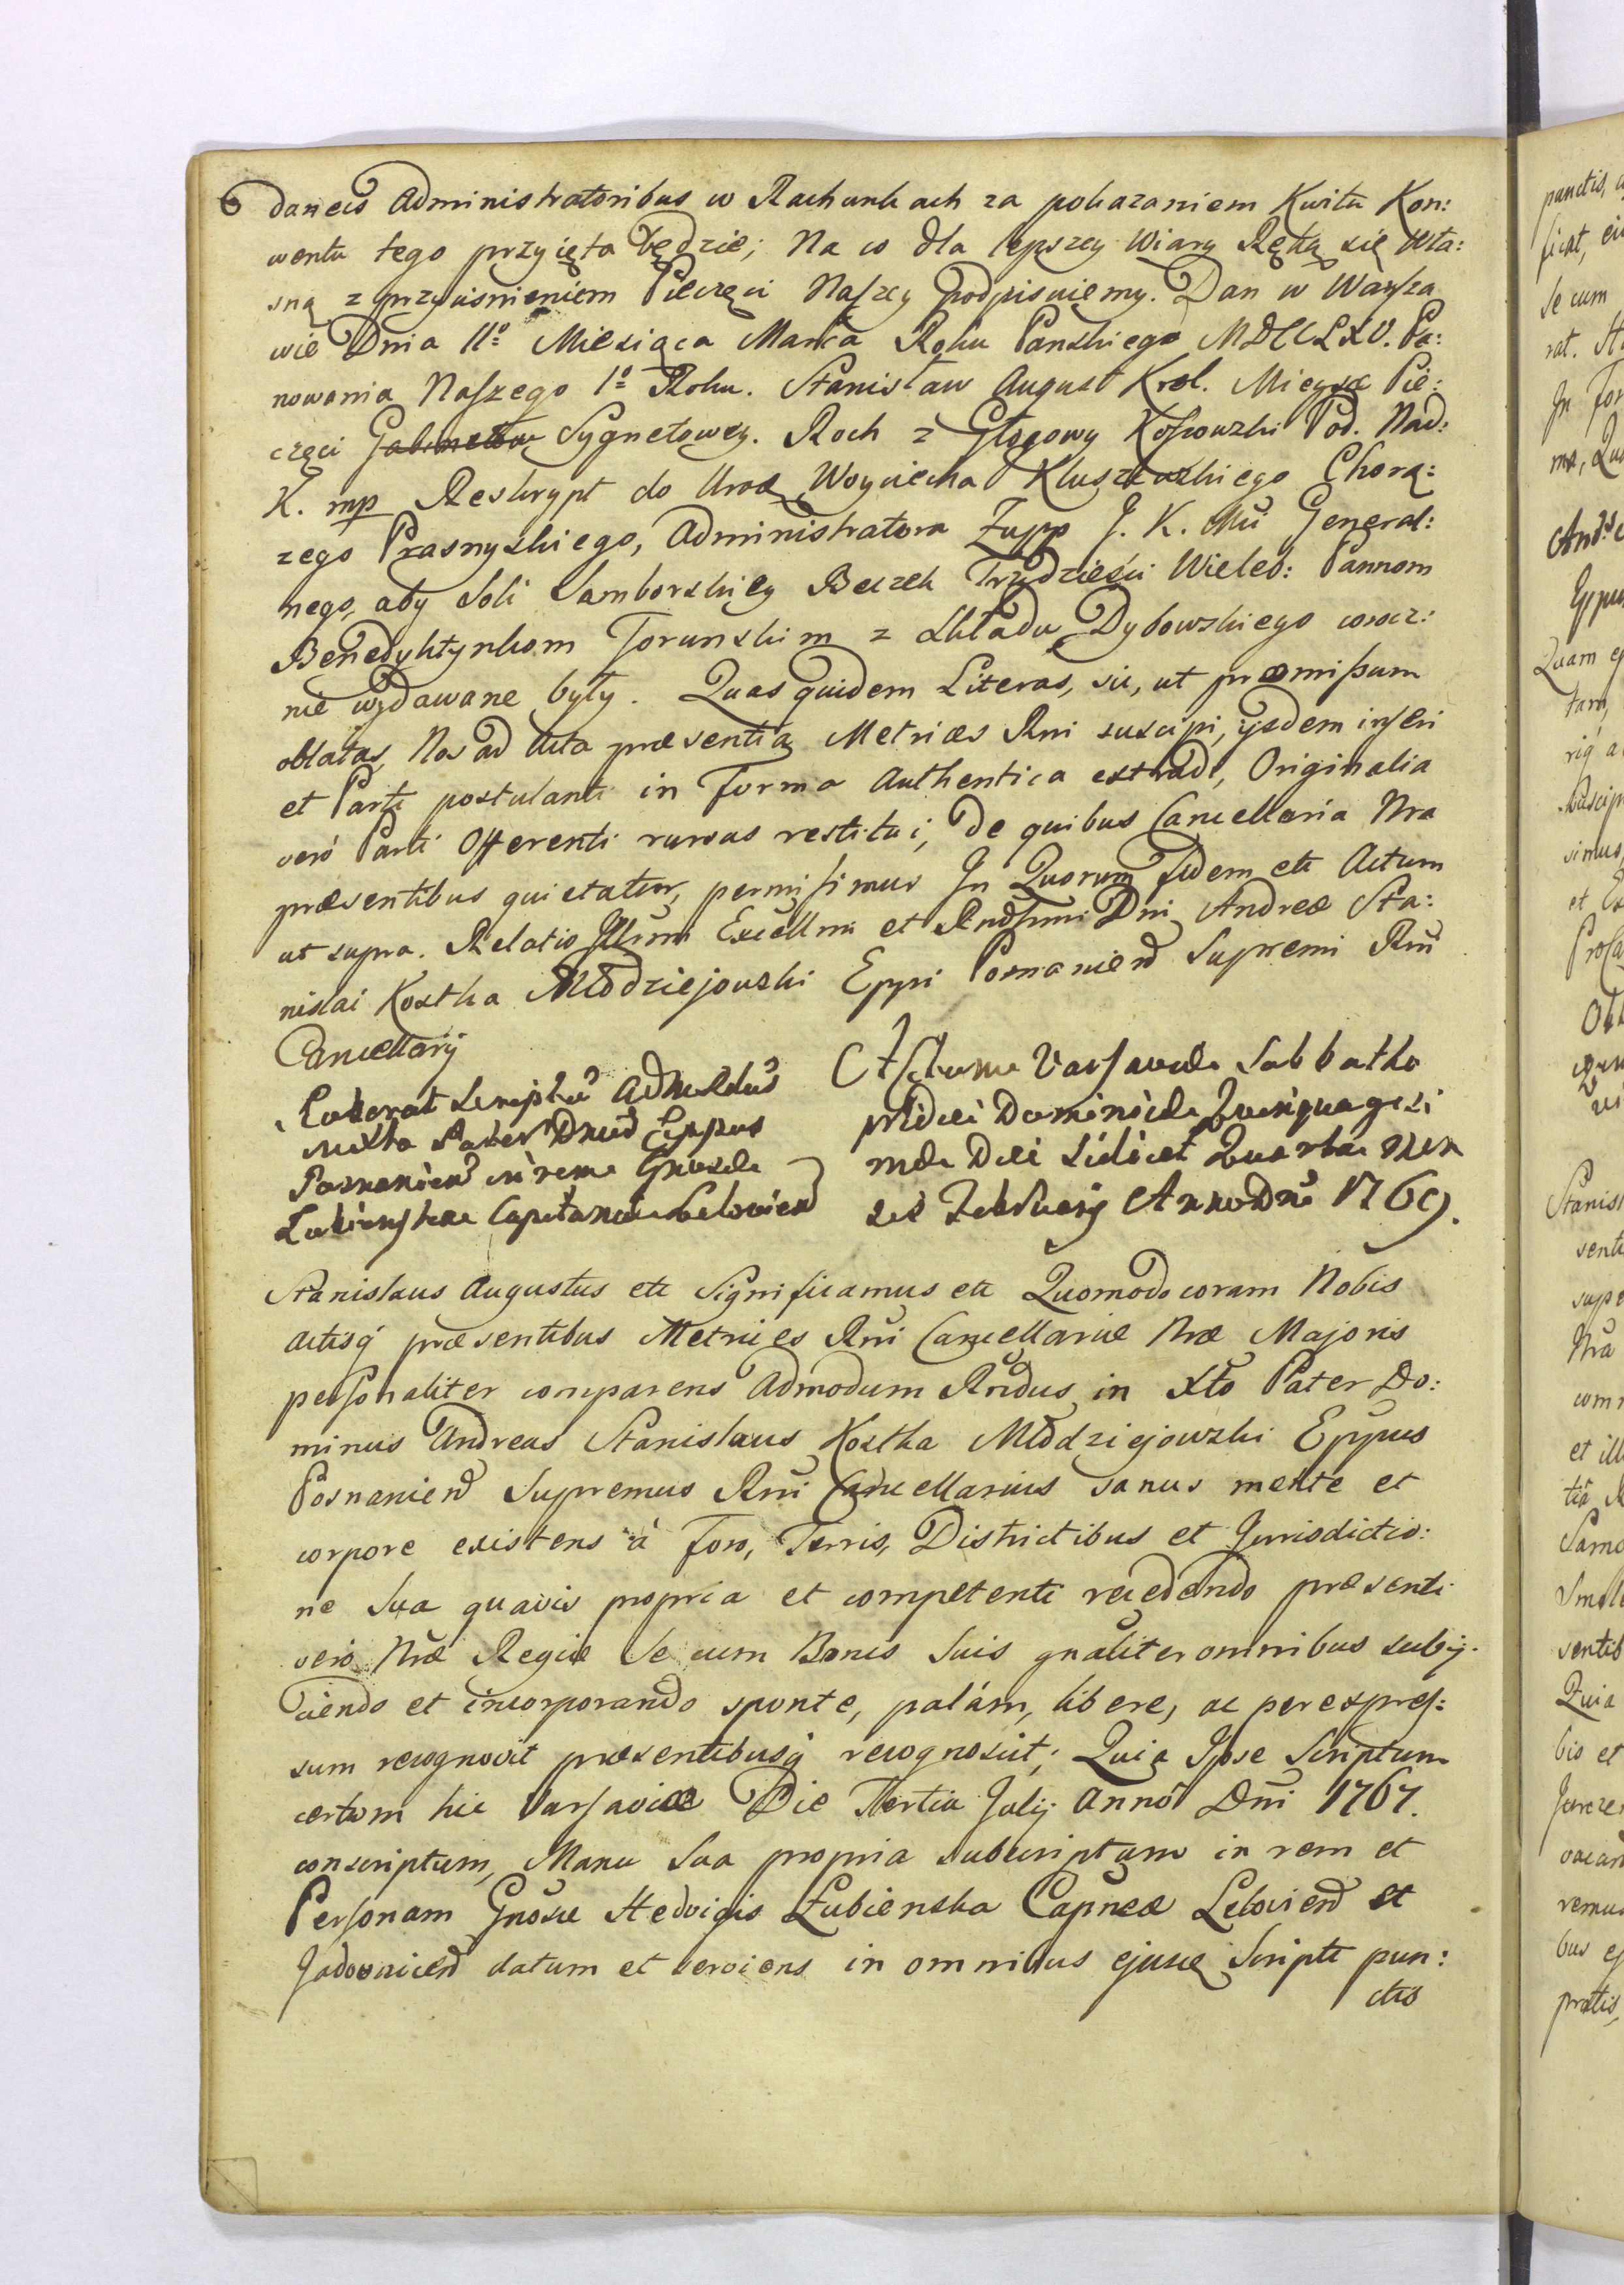 6 daneis Administratoribus w Rachunkach za pokazaniem Kwitu Kon:
wentu tego przyięta będzie; Na co dla lepszey Wiary Ręką się Wła:
sną z przyciśnieniem Pieczęci Naszey podpisuiemy. Dan w Warsza
wie Dnia 11º Miesiąca Marca Roku Panskiego MDCCLXV. Pa:
nowania Naszego 1º Roku. Stanisław August Krol. Mieysce Pie:
częci Gabinetow Sygnetowey. Roch z Głogowy Kossowski Pod. Nad:
K. mp Reskrypt do Urod Woyciecha Kluszewskiego Chorą:
zego Prasnyskiego, Administratora Zupp J. K. Mci General:
nego, aby Soli Samborskiey Beczek Trzydzieści Wieleb: Pannom
Benedyktynkom Torunskim z Składu Dybowskiego corocz:
nie wydawane były. Quas quidem Literas, sic, ut præmissum
oblatas, Nos ad Acta præsentia Metrices Rni suscipi, ijsdem inseri
et Parti postulanti in Forma Authentica extradi, Originalia
verò Parti Offerenti rursus restitui, De quibus Cancellaria Nra
præsentibus quietatur, permisimus In Quorum fidem etc Actum
ut supra. Relatio Illrmi Excellmi et Rndssmi Dni Andreæ Sta:
nislai Kostka Młodziejowski Eppi Posnanien Supremi Rni
Cancellarij
Roborat Scriptu AdmRdus
in Xto Pater Dnus Eppus
Posnanien in rem Gnosæ
Lubienska Capitaneæ Lelovien
Actum Varsaviæ Sabbatho
pridie Dominicæ Quinquagesi
mæ Die Scilicet Quarta Men
sis Februarij Anno Dni 1769.
Stanislaus Augustus etc Significamus etc Quomodo coram Nobis
Actisq præsentibus Metrices Rni Cancellariæ Nræ Majoris
personaliter comparens Admodum Rndus in Xto Pater Do:
minus Andreas Stanislaus Kostka Młodziejowski Eppus
Posnanien Supremus Rni Cancellarius sanus mente et
corpore existens à Foro, Terris, Districtibus et Jurisdictio:
ne Sua quavis propria et competenti recedendo præsenti
verò Nræ Regiæ Se cum Bonis Suis gnaliter omnibus subij
ciendo et incorporando sponte, palám, libere, ac per expres:
sum recognovit præsentibusq recognoscit; Quia Ipse Scriptum
certum hic Varsaviæ Die Tertia Julij Annò Dni 1767.
conscriptum, Manu Sua propria subscriptum in rem et
Personam Gnosæ Hedvigis Łubienska Capneæ Lelovien et
Jadovnicen datum et serviens in omnibus ejusd Scripti pun:
ctis